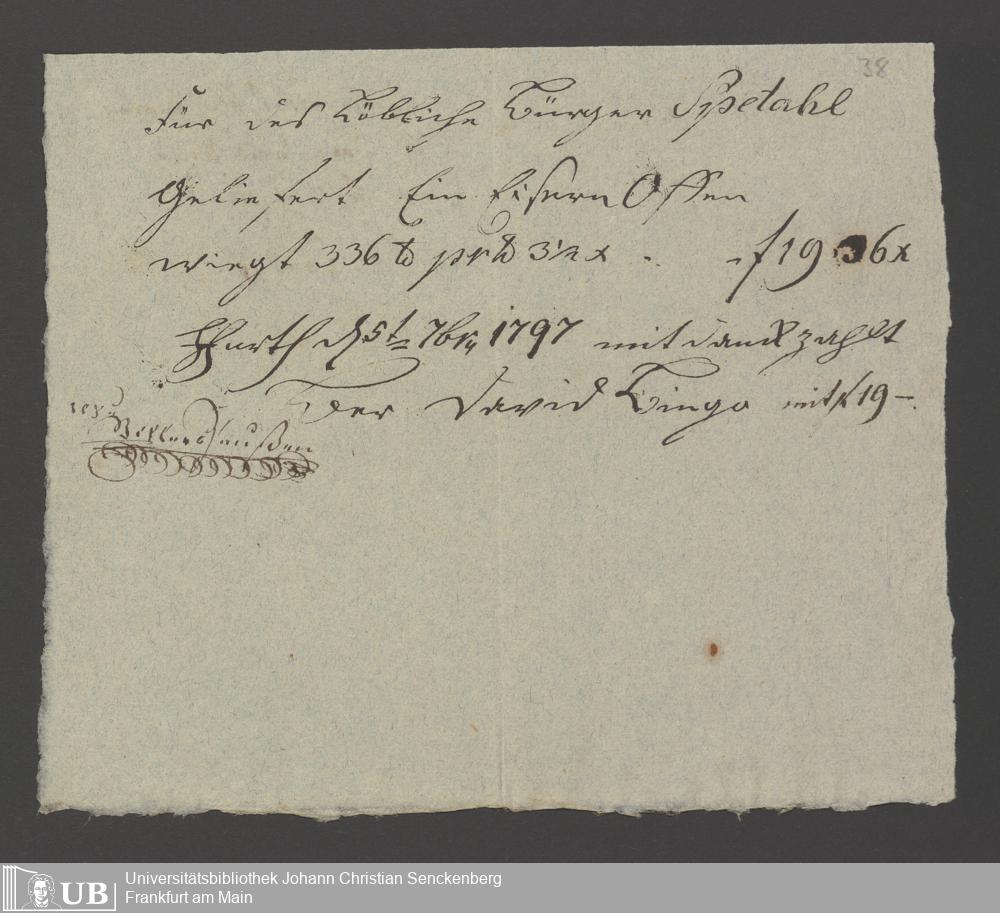 38
Für das Löbliche Bürger Spetahl
Geliefert Ein Eisern Offen
wiegt 336 ℔ pr ℔ 3½ x . f 19 36 x
Ffurth d 5t 7br 1797 mit danck zahlt
Der David Bingo mit f 19 –.
Universitätsbibliothek Johann Christian Senckenberg
UB Frankfurt am Main